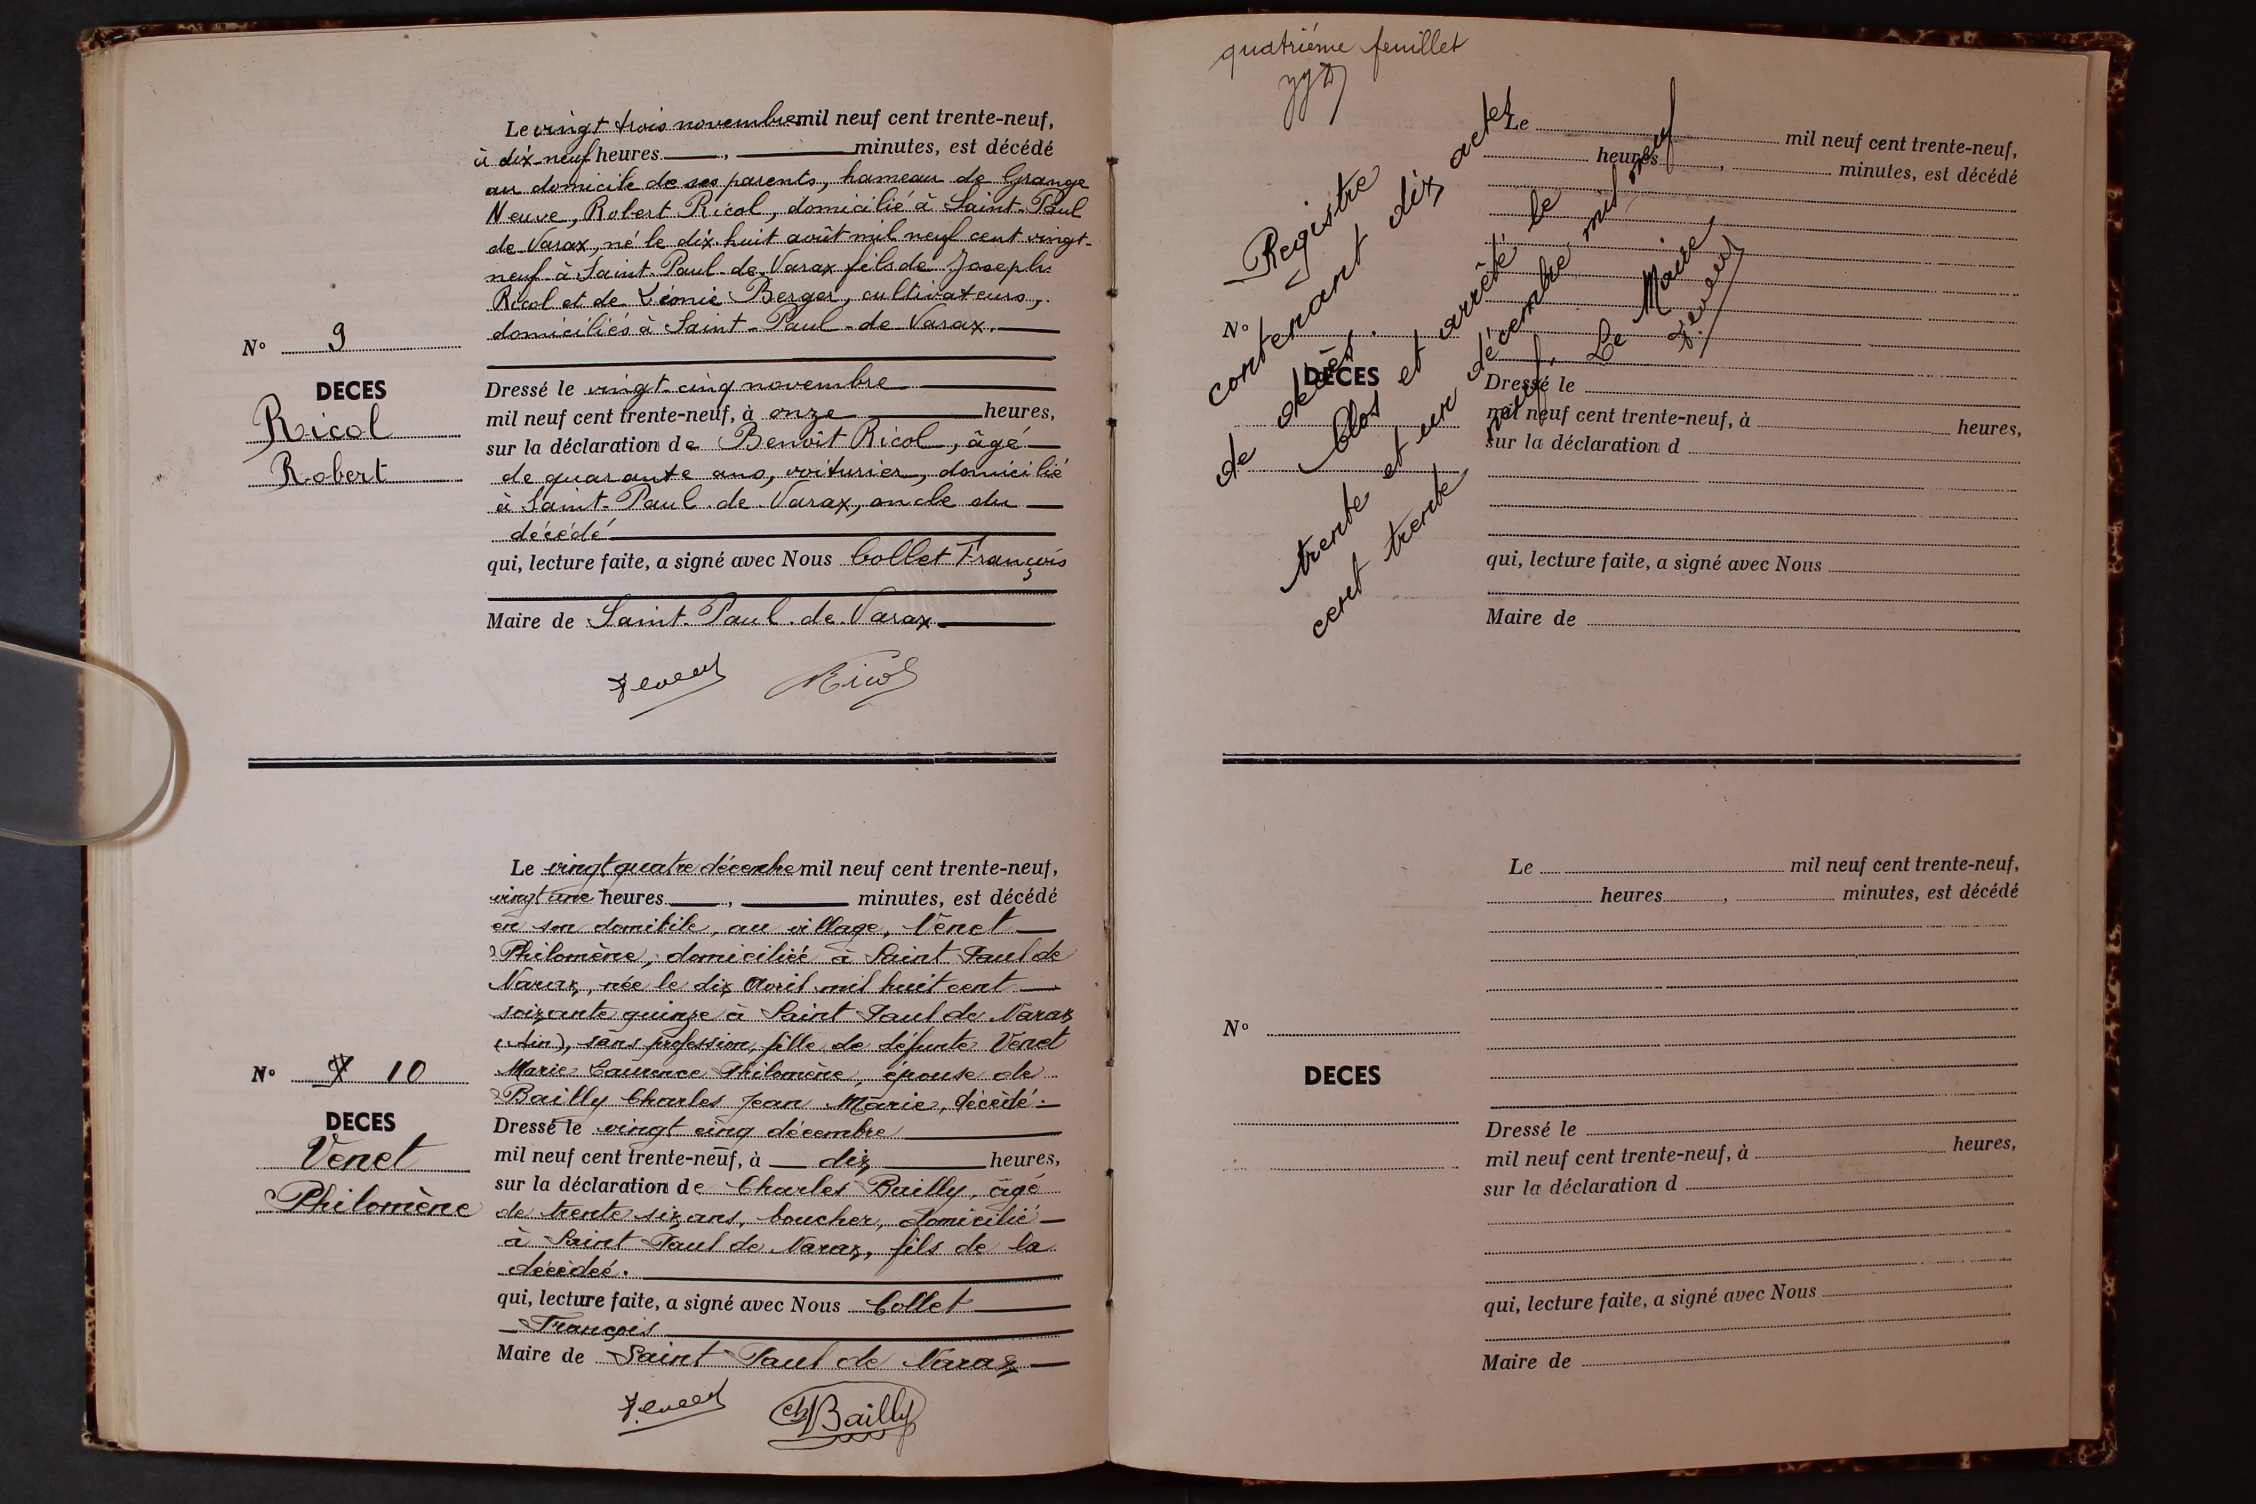 Le vingt trois novembre mil neuf cent trente-neuf,
à dix-neuf heures , minutes, est décédé
au domicile de ses parents, hameau de Grange
Neuve, Robert Ricol, domicilié à Saint-Paul
de Varax, né le dix-huit août mil neuf cent vingt-
neuf à Saint-Paul-de-Varax fils de Joseph
Ricol et de Léonie Berger, cultivateurs,
domiciliés à Saint-Paul-de Varax.
N° 9
DECES
Ricol
Robert
Dressé le vingt-cinq novembre
mil neuf cent trente-neuf, à onze heures,
sur la déclaration de Benoît Ricol, âgé
de quarante ans, voiturier, domicilié
à Saint-Paul-de-Varax, oncle du
décédé
qui, lecture faite, a signé avec Nous Collet François
Maire de Saint-Paul-de-Varax
Ricol
Le vingt quatre décembre mil neuf cent trente-neuf,
vingt une heures , minutes, est décédé
en son domicile, au village, Venet
Philomène, domiciliée à Saint Paul de
Varax, née le dix Avril mil huit cent
soixante quinze à Saint Paul de Varax
(Ain), sans profession, fille de défunte Venet
Marie Laurence Philomène, épouse de
Bailly Charles Jean Marie, décédé.
N° 10
DECES
Venet
Philomène
Dressé le vingt cinq décembre
mil neuf cent trente-neuf, à dix heures,
sur la déclaration de Charles Bailly, âgé
de trente six ans, boucher, domicilié
à Saint Paul de Varax, fils de la
décédeé.
qui, lecture faite, a signé avec Nous Collet
François
Maire de Saint Paul de Varax
Ch Bailly
quatriéme feuillet
Registre
contenant dix actes
de décès.
Clos et arrêté le
trente et un décembre mil neuf
cent trente neuf. Le Maire
Le mil neuf cent trente-neuf,
heures , minutes, est décédé
N°
DECES
Dressé le
mil neuf cent trente-neuf, à heures,
sur la déclaration d
qui, lecture faite, a signé avec Nous
Maire de
Le mil neuf cent trente-neuf,
heures , minutes, est décédé
N°
DECES
Dressé le
mil neuf cent trente-neuf, à heures,
sur la déclaration d
qui, lecture faite, a signé avec Nous
Maire de